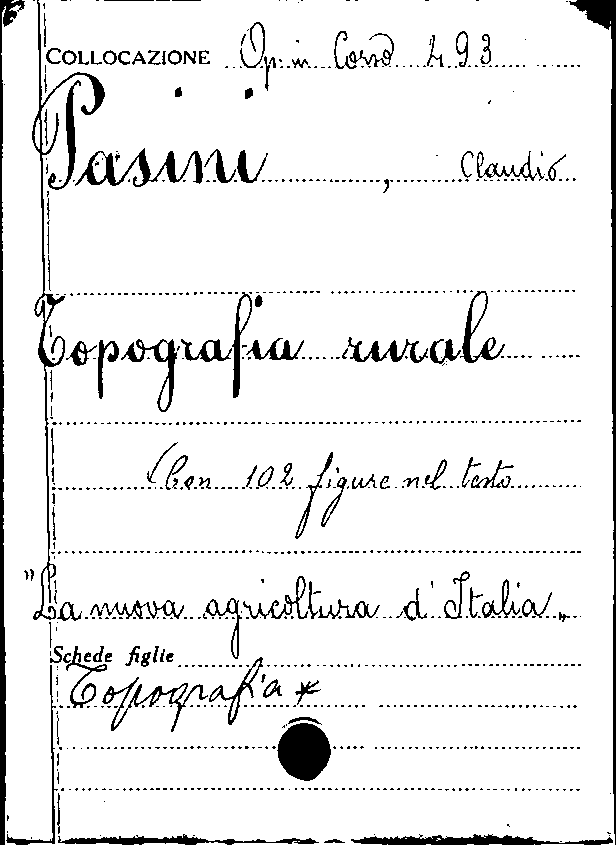 COLLOCAZIONE Op. in Corso 493
Pasini, Claudio
Topografia rurale
(Con 102 figure nel testo
"La nuova agricoltura d'Italia„
Schede figlie
Topografia *